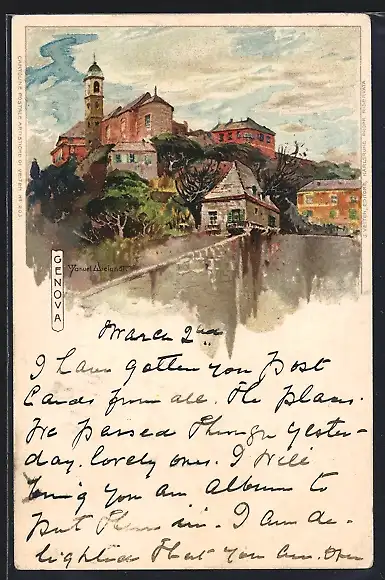 CARTOLINE POSTALE ARTISTICHE DI VELTEN
J. VELTEN, EDITORE,
GENOVA
Manuel Wielandt
March 2nd
I have gotten you post
Cards from all. The places.
We passed Through yester-
day. lovely ones. I will
bring you an album to
put Them in. I am de-
lighted That you are.